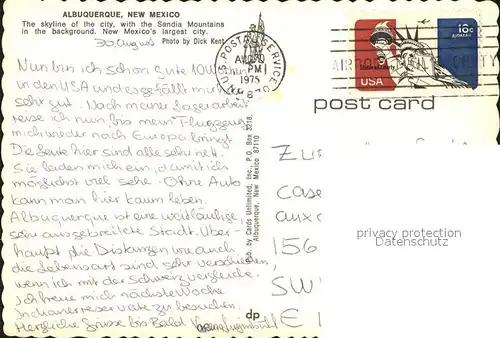 ALBUQUERQUE, NEW MEXICO
The skyline of the city, with the Sandia Mountains
in the background. New Mexico's largest city.
Photo by Dick Kent
30. August
Nun bin ich schon gute 10 Wochen
in den USA und es gefällt mir
sehr gut. Nach meiner Lagerarbeit
reise ich nun bis mein Flugzeug
mich wieder nach Europa bringt.
Die Leute hier sind alle sehr nett.
Sie laden mich ein, damit ich
möglichst viel sehe - Ohne Auto
kann man hier kaum leben.
Albuquerque ist eine weitläufige
sehr ausgebreitete Stadt. Über-
haupt die Distanzen wie auch
die Lebensart sind sehr verschieden,
wenn ich mit der Schweiz vergleiche.
Ich freue mich nächste Woche
Indianerreservate zu besuchen.
Herzliche Grüsse bis Bald
Pub. by Cards Unlimited, Inc., P.O. Box 3218,
Albuquerque, New Mexico 87110
U.S. POSTAL SERVICE
PM
1975
USA
18c
post card
case
156
SW
E
privacy protection
Datenschutz
dp